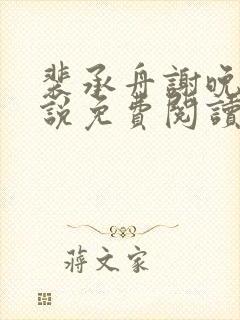 裴承舟謝晚
說免費閱讀
蔣文家